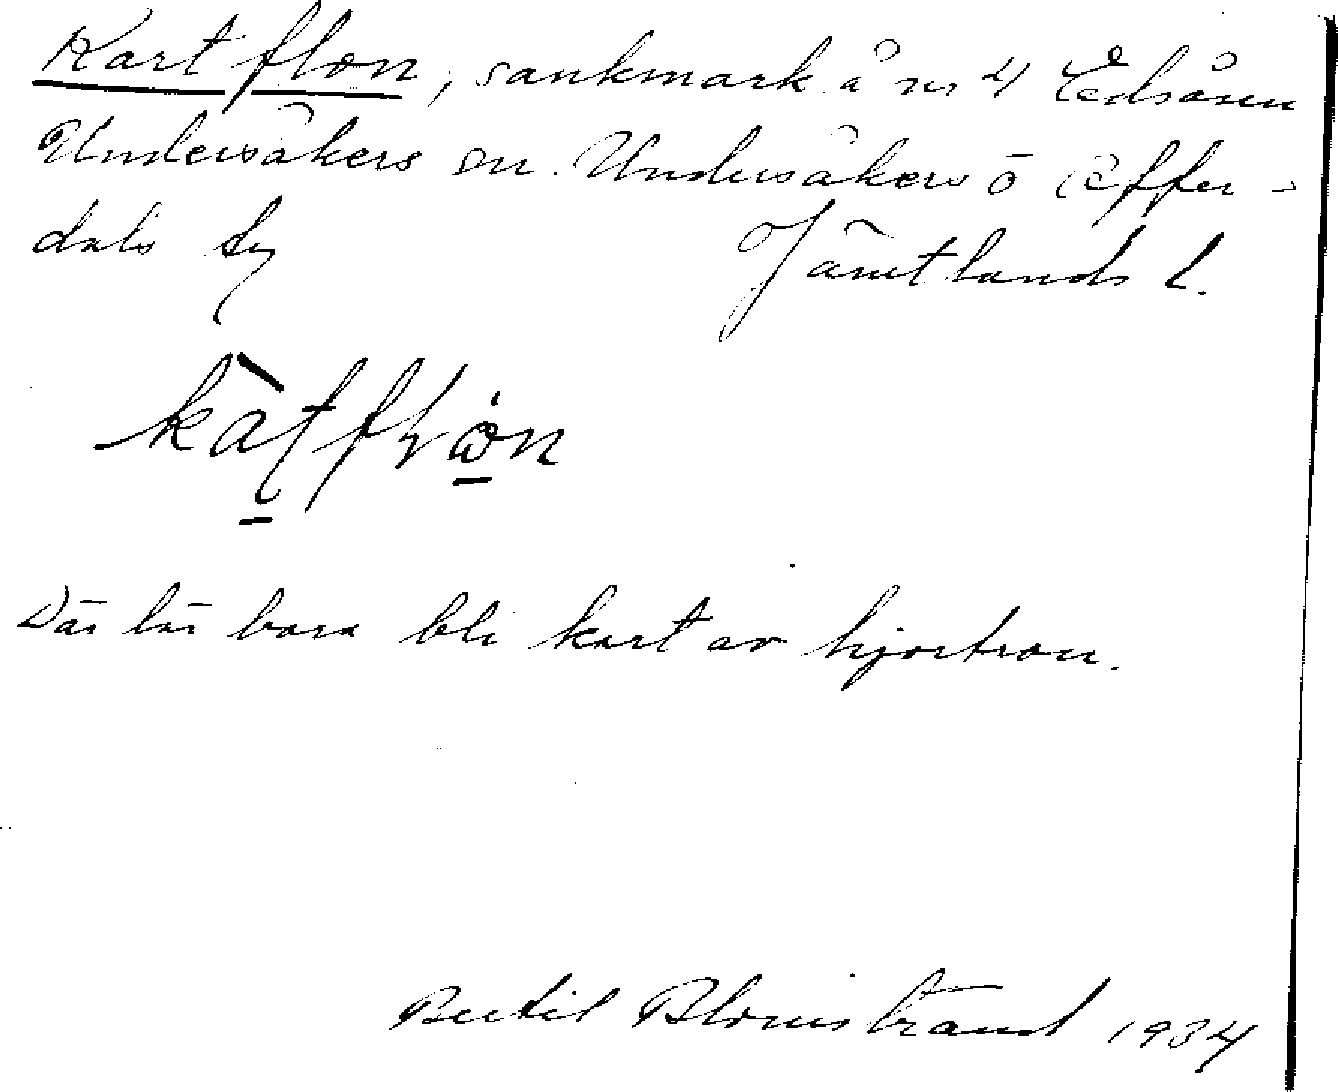 Kartflon, sankmark å nr 4 Edsåsen
Undersåkers sn. Undersåkers o Offer-
dals tg Jämtlands l.
Där lär bara bli kart av hjortron.
Bertil Blomstrand 1934